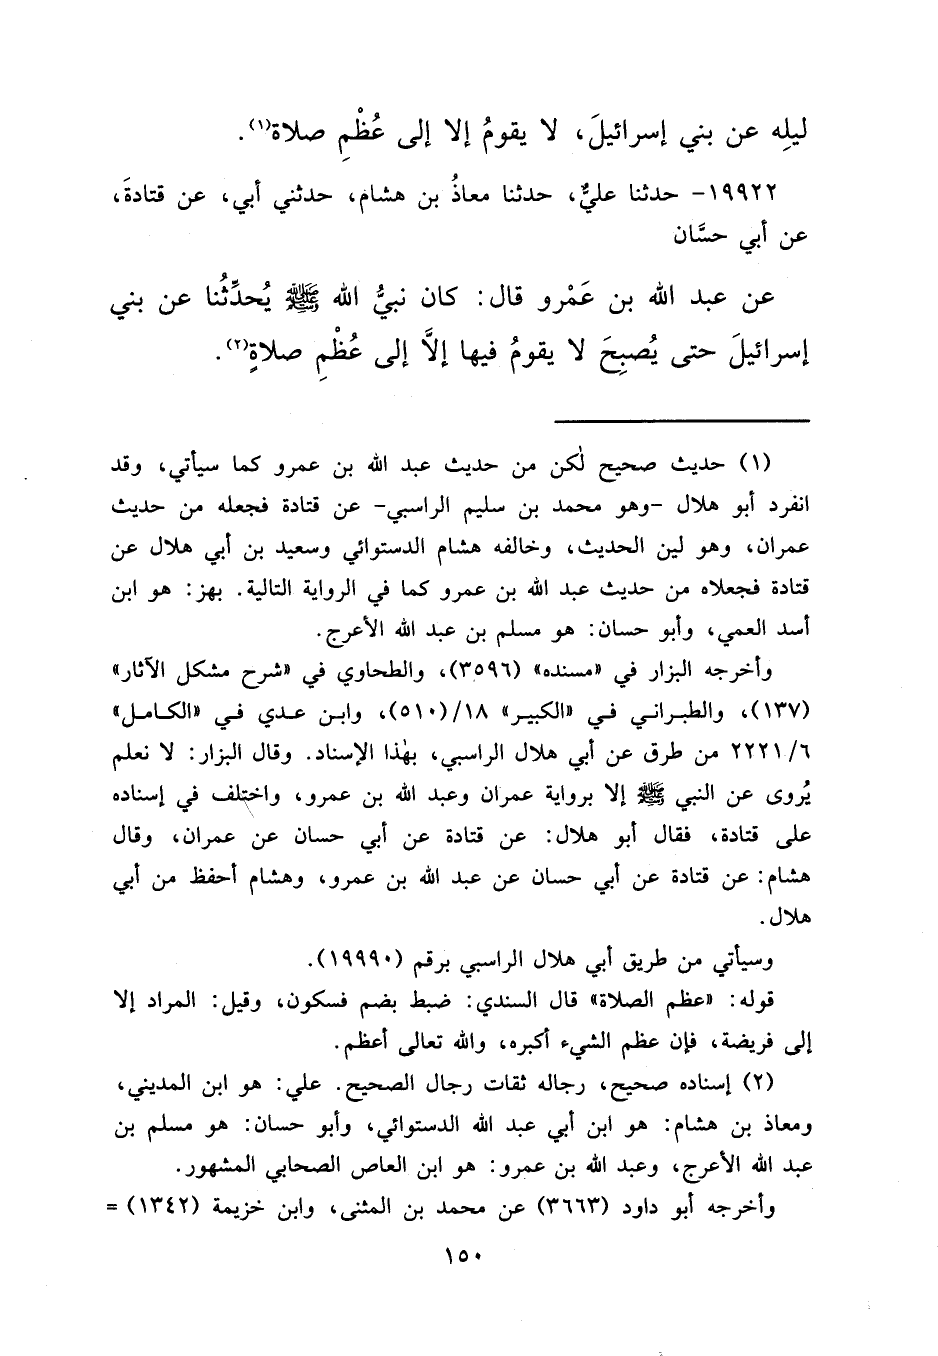 ليلِه عن بني إسرائيلَ، لا يقومُ إلا إلى عُظْمِ صلاة(١).
١٩٩٢٢- حدثنا عليٌّ، حدثنا معاذُ بن هشام، حدثني أبي، عن قتادةَ،
عن أبي حسَّان
عن عبد الله بن عَمْرو قال: كان نبيُّ الله ﷺ يُحدِّثُنا عن بني
إسرائيلَ حتى يُصبِحَ لا يقومُ فيها إلاَّ إلى عُظْمِ صلاةٍ(٢).
(١) حديث صحيح لٰكن من حديث عبد الله بن عمرو كما سيأتي، وقد
انفرد أبو هلال -وهو محمد بن سليم الراسبي- عن قتادة فجعله من حديث
عمران، وهو لين الحديث، وخالفه هشام الدستوائي وسعيد بن أبي هلال عن
قتادة فجعلاه من حديث عبد الله بن عمرو كما في الرواية التالية. بهز: هو ابن
أسد العمي، وأبو حسان: هو مسلم بن عبد الله الأعرج.
وأخرجه البزار في «مسنده» (٣٥٩٦)، والطحاوي في «شرح مشكل الآثار»
(١٣٧)، والطبراني في «الكبير» ١٨/(٥١٠)، وابن عدي في «الكامل»
٢٢٢١/٦ من طرق عن أبي هلال الراسبي، بهٰذا الإسناد. وقال البزار: لا نعلم
يُروى عن النبي ﷺ إلا برواية عمران وعبد الله بن عمرو، واختلف في إسناده
على قتادة، فقال أبو هلال: عن قتادة عن أبي حسان عن عمران، وقال
هشام: عن قتادة عن أبي حسان عن عبد الله بن عمرو، وهشام أحفظ من أبي
هلال.
وسيأتي من طريق أبي هلال الراسبي برقم (١٩٩٩٠).
قوله: «عظم الصلاة» قال السندي: ضبط بضم فسكون، وقيل: المراد إلا
إلى فريضة، فإن عظم الشيء أكبره، والله تعالى أعظم.
(٢) إسناده صحيح، رجاله ثقات رجال الصحيح. علي: هو ابن المديني،
ومعاذ بن هشام: هو ابن أبي عبد الله الدستوائي، وأبو حسان: هو مسلم بن
عبد الله الأعرج، وعبد الله بن عمرو: هو ابن العاص الصحابي المشهور.
وأخرجه أبو داود (٣٦٦٣) عن محمد بن المثنى، وابن خزيمة (١٣٤٢) =
١٥٠